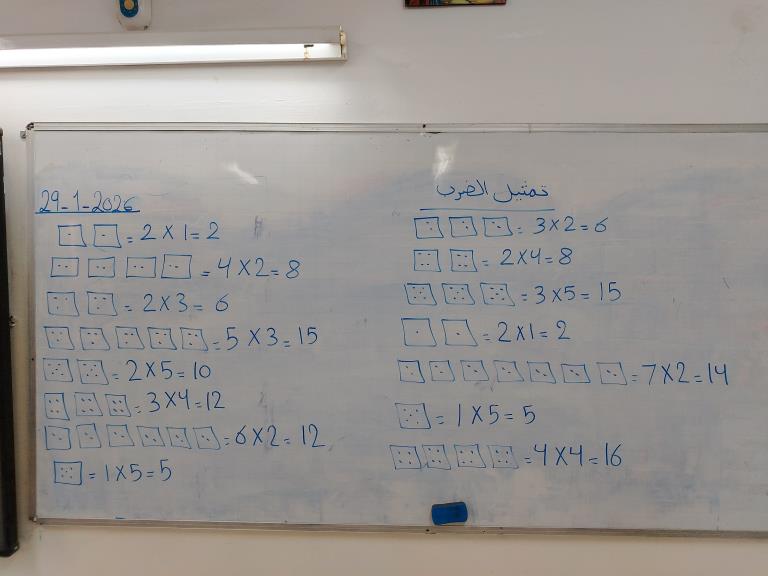 تمثيل الضرب
29-1-2026
= 2 X 1 = 2
= 4 X 2 = 8
= 2 X 3 = 6
= 5 X 3 = 15
= 2 X 5 = 10
= 3 X 4 = 12
= 6 X 2 = 12
= 1 X 5 = 5
= 3 X 2 = 6
= 2 X 4 = 8
= 3 X 5 = 15
= 2 X 1 = 2
= 7 X 2 = 14
= 1 X 5 = 5
= 4 X 4 = 16